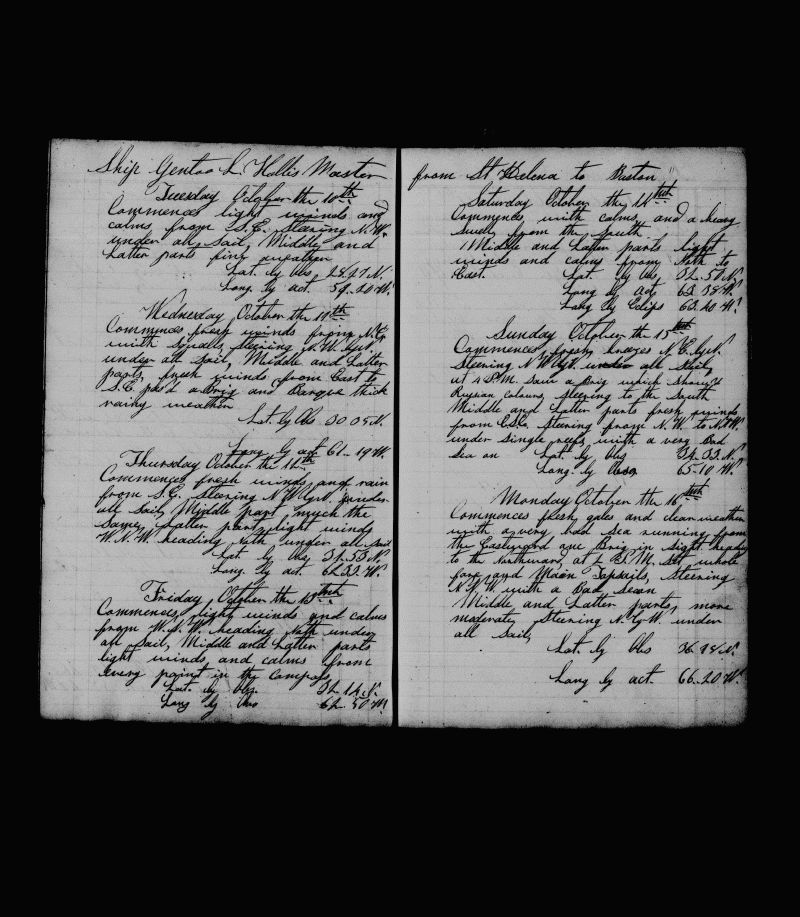 Ship Gentoo L. Hollis Master
Tuesday October the 10th
Commences light winds and
calms from S.E. Steering N.W.
under all Sail, Middle and
Latter parts fine weather
Lat. by Obs 28.27 N.
Long. by act. 59.20 W.
Wednesday October the 11th
Commences fresh winds from
with Squalls, steering N.W.
under all sail, Middle and Latter
parts, fresh winds from East to
S.E. pas'd a Brig and Barque thick
rainy weather
Lat. by Obs 30.05 N
Long. by act 61-19 W.
Thursday October the 12th
Commences fresh winds and rain
from S.E. Steering N.W. under
all Sail, Middle part much the
Same, Latter part light winds
W.N.W. heading Noth under all Sail
Lat by Obs 31.53 N.
Long. by act. 62.33 W.
Friday, October the 13th
Commences light winds and calms
from W.N.W. heading Noth under
all Sail, Middle and Latter parts
light winds and calms from
every point in the Compass,
Lat. by Obs. 32.14 N.
Long by Obs 62.50 W.
from St Helena to Boston
Saturday October the 14th
Commences with calms, and a heavy
Swell from the South
Middle and Latter parts light
winds and calms from Noth to
East. Lat by Obs 32.50 N.
Long by Act 63.38 W.
Long by Eclips 63.20 W.
Sunday October the 15th
Commences fresh breezes N.E.
Steering N.W. under all Sail,
at 4 P.M. Saw a Brig which Shew'd
Rusian Colours, steering to the South
Middle and Latter parts fresh winds
from E.S.E. Steering from N.W. to N.N.W.
under Single reefs with a very Bad
Sea on Lat by Obs 34.33 N.
Long. by Obs 65.10 W.
Monday October the 16th
Commences fresh gales and clear weather
with a very bad Sea running from
the Eastward one Brig in Sight heading
to the Northward, at 2 P.M. Set whole
fore and Main Topsails, Steering
N.N.W. with a Bad Sea on
Middle and Latter parts, more
moderate, Steering N. by W. under
all Sail,
Lat. by Obs 36.28 N.
Long by act. 66.20 W.